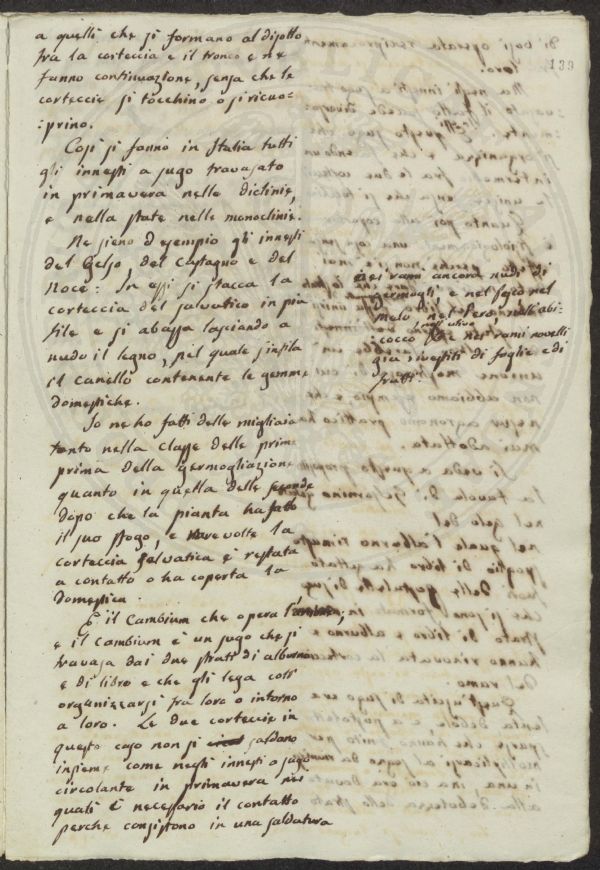 133
a quelli che si formano al disotto
fra la corteccia e il tronco e ne
fanno continuazione, senza che le
corteccie si tocchino o si ricuo-
:prino.
Così si fanno in Italia tutti
gli innesti a sugo travasato
in primavera nelle diclinie,
e nella state nelle monoclinie.
Ne sieno d'esempio gli innesti
del Gelso, del Castagno e del
Noce: In essi si stacca la
corteccia del salvatico in più
file e si abassa lasciando a
nudo il legno, nel quale s'infila
il Canello contenente le gemme
domestiche.
nei rami ancora nudi di
germogli, e nel fico nel
melo, nel Pero, nell'abi-
cocco
nei rami novelli
già rivestiti di foglie e di
frutti
Io ne ho fatti delle migliaia
tanto nella classe delle prime
prima della germogliazione
quanto in quella delle seconde
dopo che la pianta ha fatto
il suo sfogo, e rare volte la
corteccia selvatica è restata
a contatto o ha coperta la
domestica.
È il Cambium che opera l'unione;
e il Cambium è un sugo che si
travasa dai due strati di alburno
e di libro e che gli lega coll'
organizzarsi fra loro o intorno
a loro. Le due corteccie in
questo caso non si saldano
insieme come negli innesti a sugo
circolante in primavera nei
quali è necessario il contatto
perche consistono in una saldatura